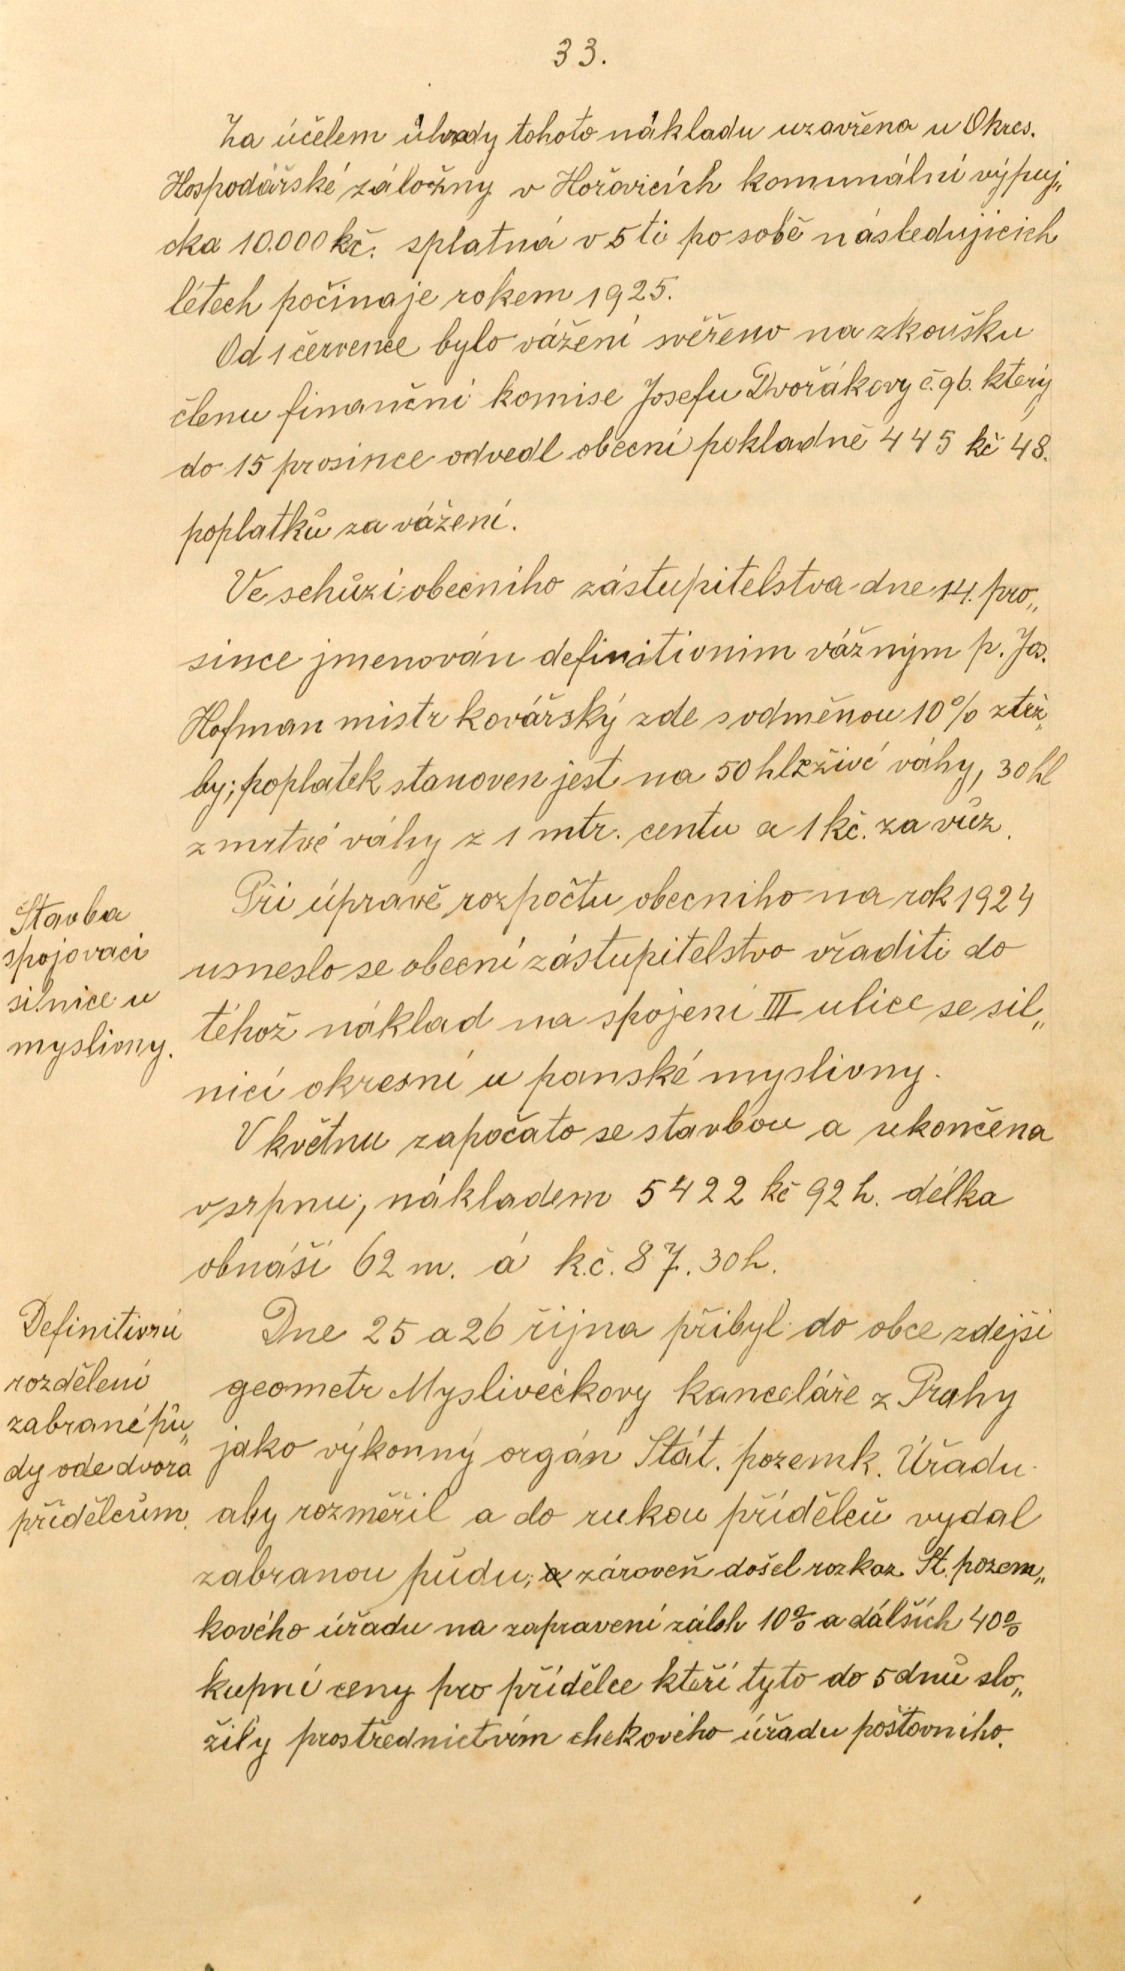 33.
Za účelem úhrady tohoto nákladu uzavřena u Okres.
Hospodářské záložny v Hořovicích komunální výpuj„
čka 10.000 kč. splatná v 5ti po sobě následujicich
létech počinaje rokem 1925.
Od 1 července bylo váženi svěřeno na zkoušku
členu finanční komise Josefu Dvořákovy č. 96. který
do 15 prosince odvedl obecní pokladně 445 kč 48.
poplatků za vážení.
Ve schůzi obecniho zástupitelstva dne 14. pro„
since jmenován definitivnim vážným p. Jos.
Hofman mistr kovářský zde s odměnou 10% z trž„
by; poplatek stanoven jest na 50 hl z živé váhy, 30 hl
z mrtvé váhy z 1 mtr. centu a 1 kč. za vůz.
Stavba
spojovaci
silnice u
myslivny.
Při úpravě rozpočtu obecniho na rok 1924
usneslo se obecní zástupitelstvo vřaditi do
téhož náklad na spojeni III ulice se sil„
nicí okresní u panské myslivny.
V květnu započato se stavbou a ukončena
v srpnu; nákladem 5422 kč 92 h. délka
obnáší 62 m. á k.č. 87.30 h.
Definitivní
rozdělení
zabrané pů„
dy ode dvora
přídělcům.
Dne 25 a 26 řijna přibyl do obce zdejši
geometr Myslivečkovy kanceláře z Prahy
jako výkonný orgán Stát. pozemk. Úřadu
aby rozměřil a do rukou přídělců vydal
zabranou půdu; zároveň došel rozkaz St. pozem„
kového úřadu na zapravení záloh 10% a dálších 40%
kupní ceny pro přídělce kteří tyto do 5 dnů slo„
žily prostřednictvím chekového úřadu poštovního.